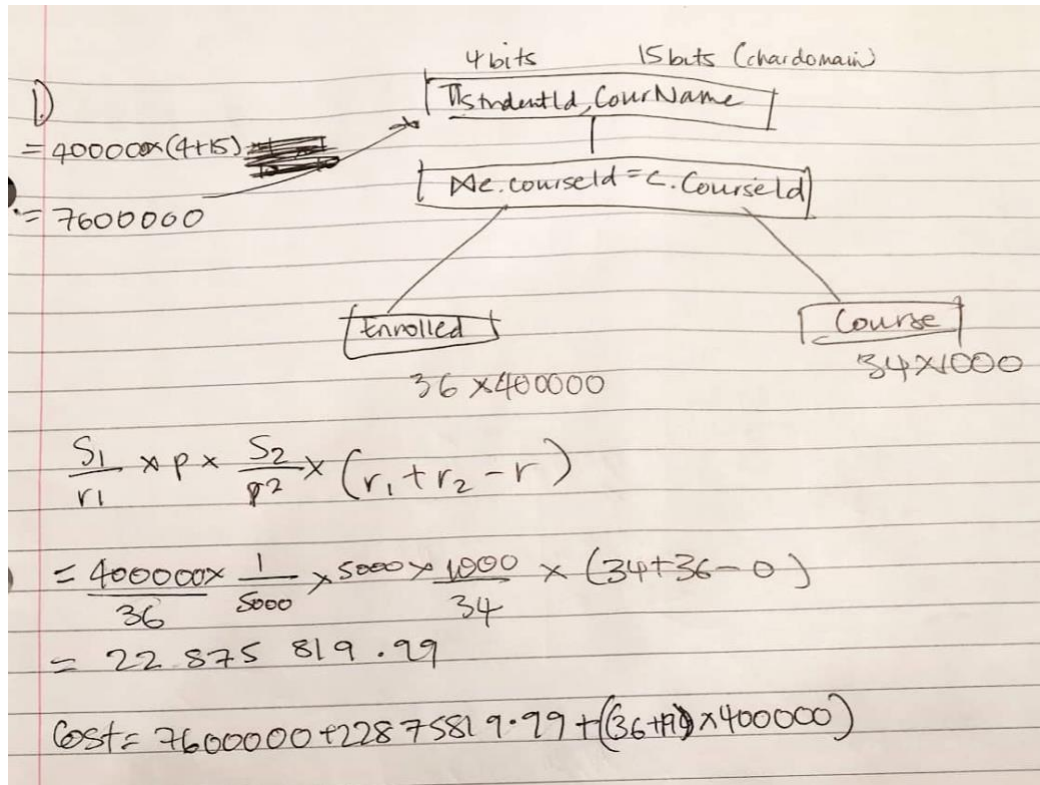 4 bits 15 bits (char domain)
1)
πstudentId, CourName
= 400000x(4+15)
= 7600000
⋈e.courseId = c.CourseId
Enrolled
Course
36 x400000
34x1000
S1/r1 x p x S2/r2 x (r1+r2-r)
= 400000x/36 1/5000 x 5000 x 1000/34 x (34+36-0)
= 22 875 819.99
Cost= 7600000+22875819.99+((36+19)x400000)